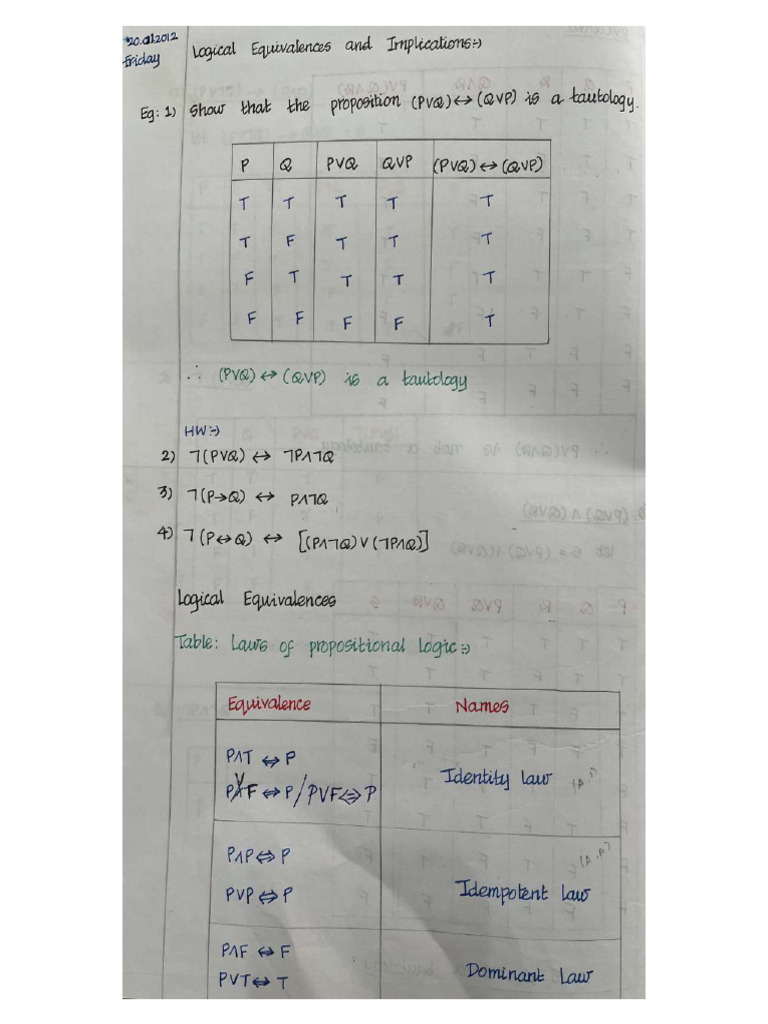 20.01.2012
Friday
Logical Equivalences and Implications:-)
Eg: 1) Show that the proposition (PVQ)↔(QVP) is a tautology.
P Q PVQ QVP (PVQ)↔(QVP)
T T T T T
T F T T T
F T T T T
F F F F T
∴ (PVQ)↔(QVP) is a tautology
HW:-)
2) ㄱ(PVQ) ↔ ㄱP∧ㄱQ
3) ㄱ(P→Q) ↔ P∧ㄱQ
4) ㄱ(P↔Q) ↔ [(P∧ㄱQ)V(ㄱP∧Q)]
Logical Equivalences
Table: Laws of propositional Logic:-)
Equivalence Names
P∧T ⇔ P
PVF ⇔ P / PVF ⇔ P Identity law
P∧P ⇔ P
PVP ⇔ P Idempotent law
P∧F ⇔ F
PVT ⇔ T Dominant Law